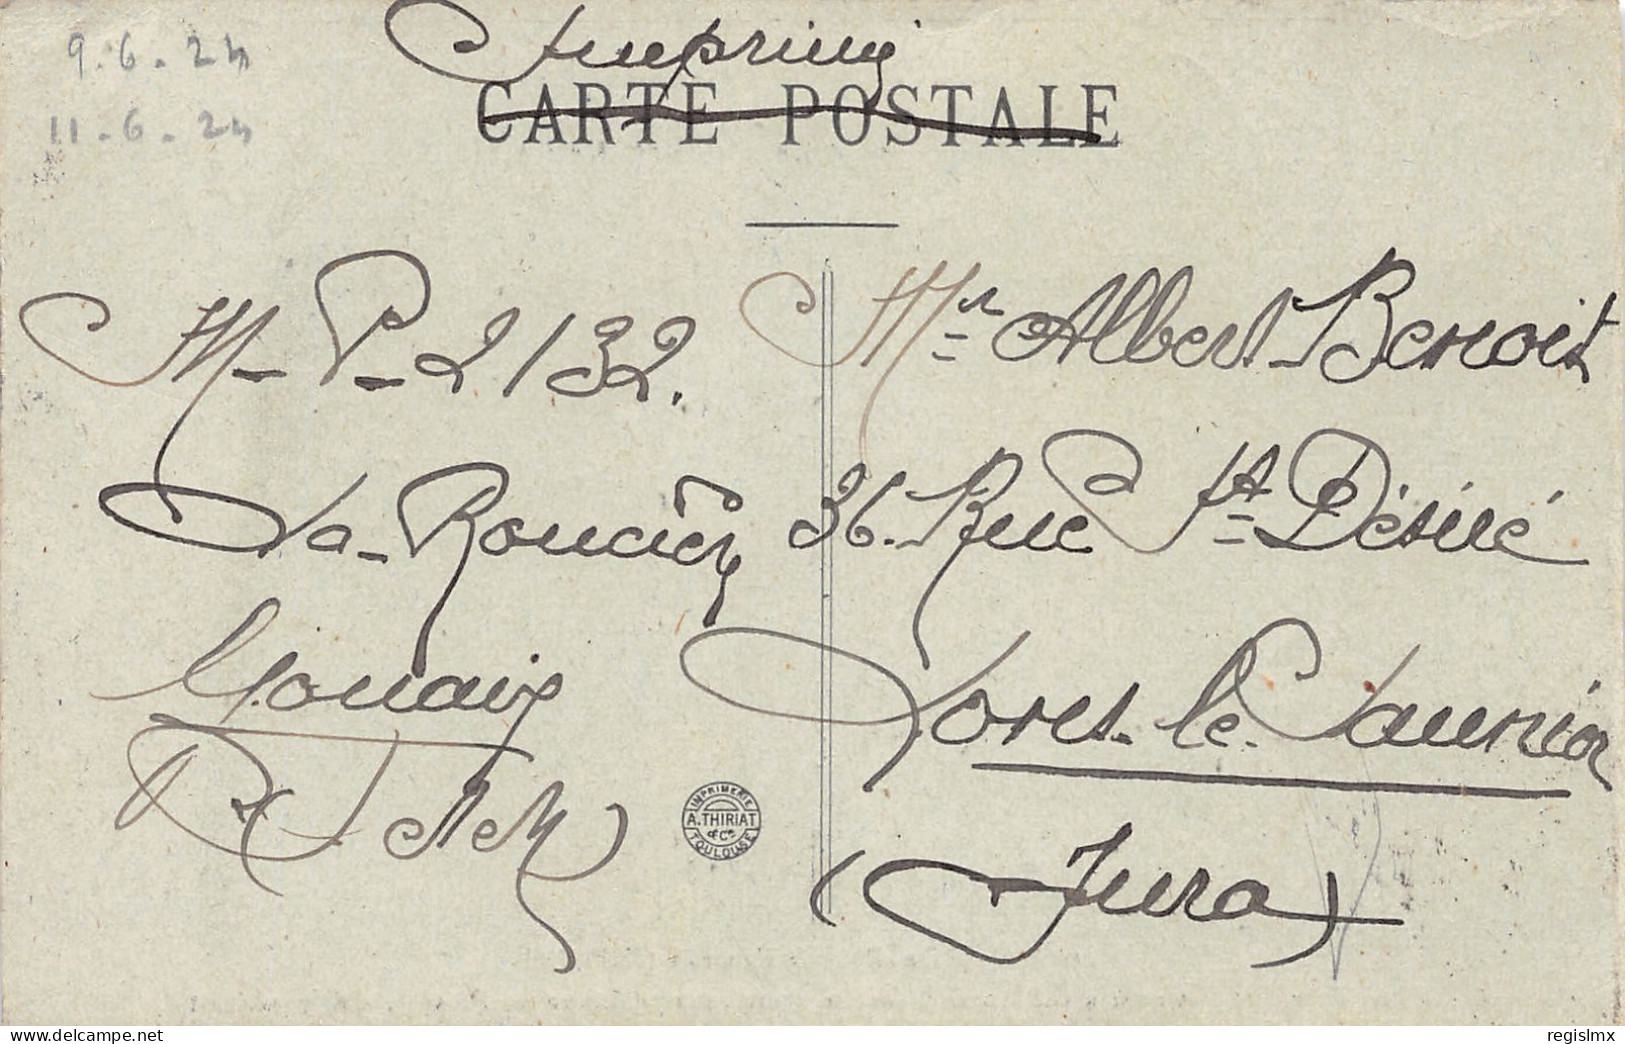 9.6.24
11-6-24
Imprimé
CARTE POSTALE
M-P-2132.
La-Roncière
Gouaix
(S et M)
Mr Albert-Benoit
36. Rue St Désiré
Lons-le-Saunier
(Jura)
IMPRIMERIE
A. THIRIAT
& Cie
TOULOUSE
regislmx